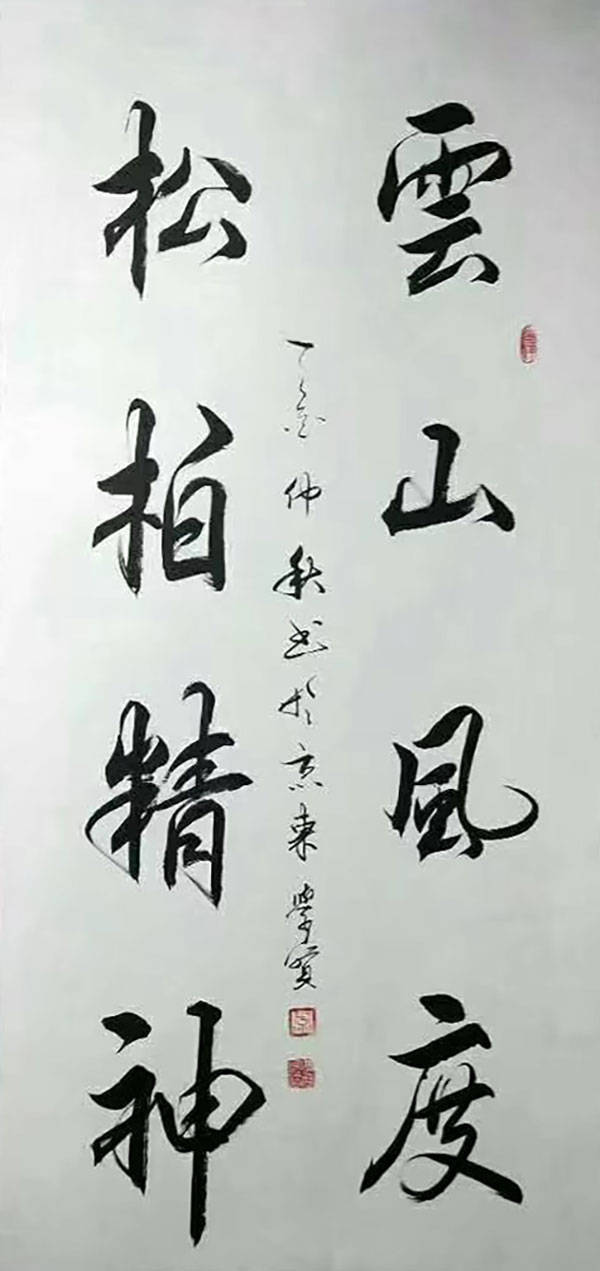 雲山風度
松柏精神
丁酉仲秋书於京東學寶